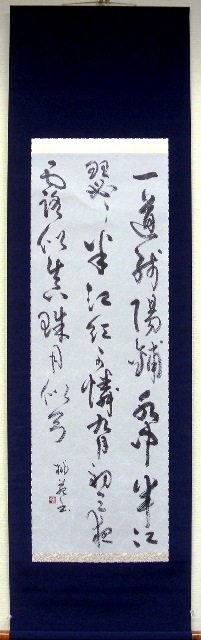 一道残陽鋪水中半江
瑟々半江紅可憐九月初三夜
露似真珠月似弓
書